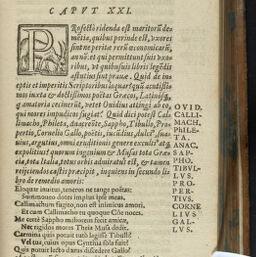 CAPVT XXI.
PRofectò ridenda est maritorũ de
mẽtia, quibus perinde est, vxores
sint ne peritæ rerũ œconomicarũ,
an nõ: et qui permittunt suis vxo
ribus, vt quibusuis libris legẽdis
astutiùs sint
eptis et imperitis Scriptoribus loquar? quũ
nos iuxta & doctissimos poëtas Græcos, Latinósq́,
amatoria cecinerũt, vetet Ouidius attingi ab eo,
qui mores impudicos fugiat? Quid dicã poëtas Cal
limacho, Phileta, Anacreõte, Sappho, Tibullo, Pro-
pertio, Cornelio Gallo, poëtis, iucũdius, dulce
uius, argutius, omni eruditionis genere
expolitius? quorum ingenium & Musas tota Græ
cia, tota Italia, totus orbis admiratus est, & tamen
reijciendos castis præcipit, ingeniens in secundo li
bro de remedio amoris:
Eloquar inuitus, teneros ne tange poëtas:
Summoueo dotes impius ipse meas.
Callimachum fugito, non est inimicus amori,
Et cum Callimacho tu quoque Côe noces.
Me certè Sappho meliorem fecit amicæ,
Nec rigidos mores Theïa Musa dedit.
Carmina quis potuit tutò legisse Tibulli?
Vel tua, cuius opus Cynthia sola fuit?
Quis potuit lecto durus discedere Gallo?
OVID.
CALLI-
MACH,
PhiLE-
TA.
ANAC,
SAP-
PHO.
TIBVL-
LVS.
PRO-
PER-
TIVS,
CORNE
LIVS
GAL-
LVS.